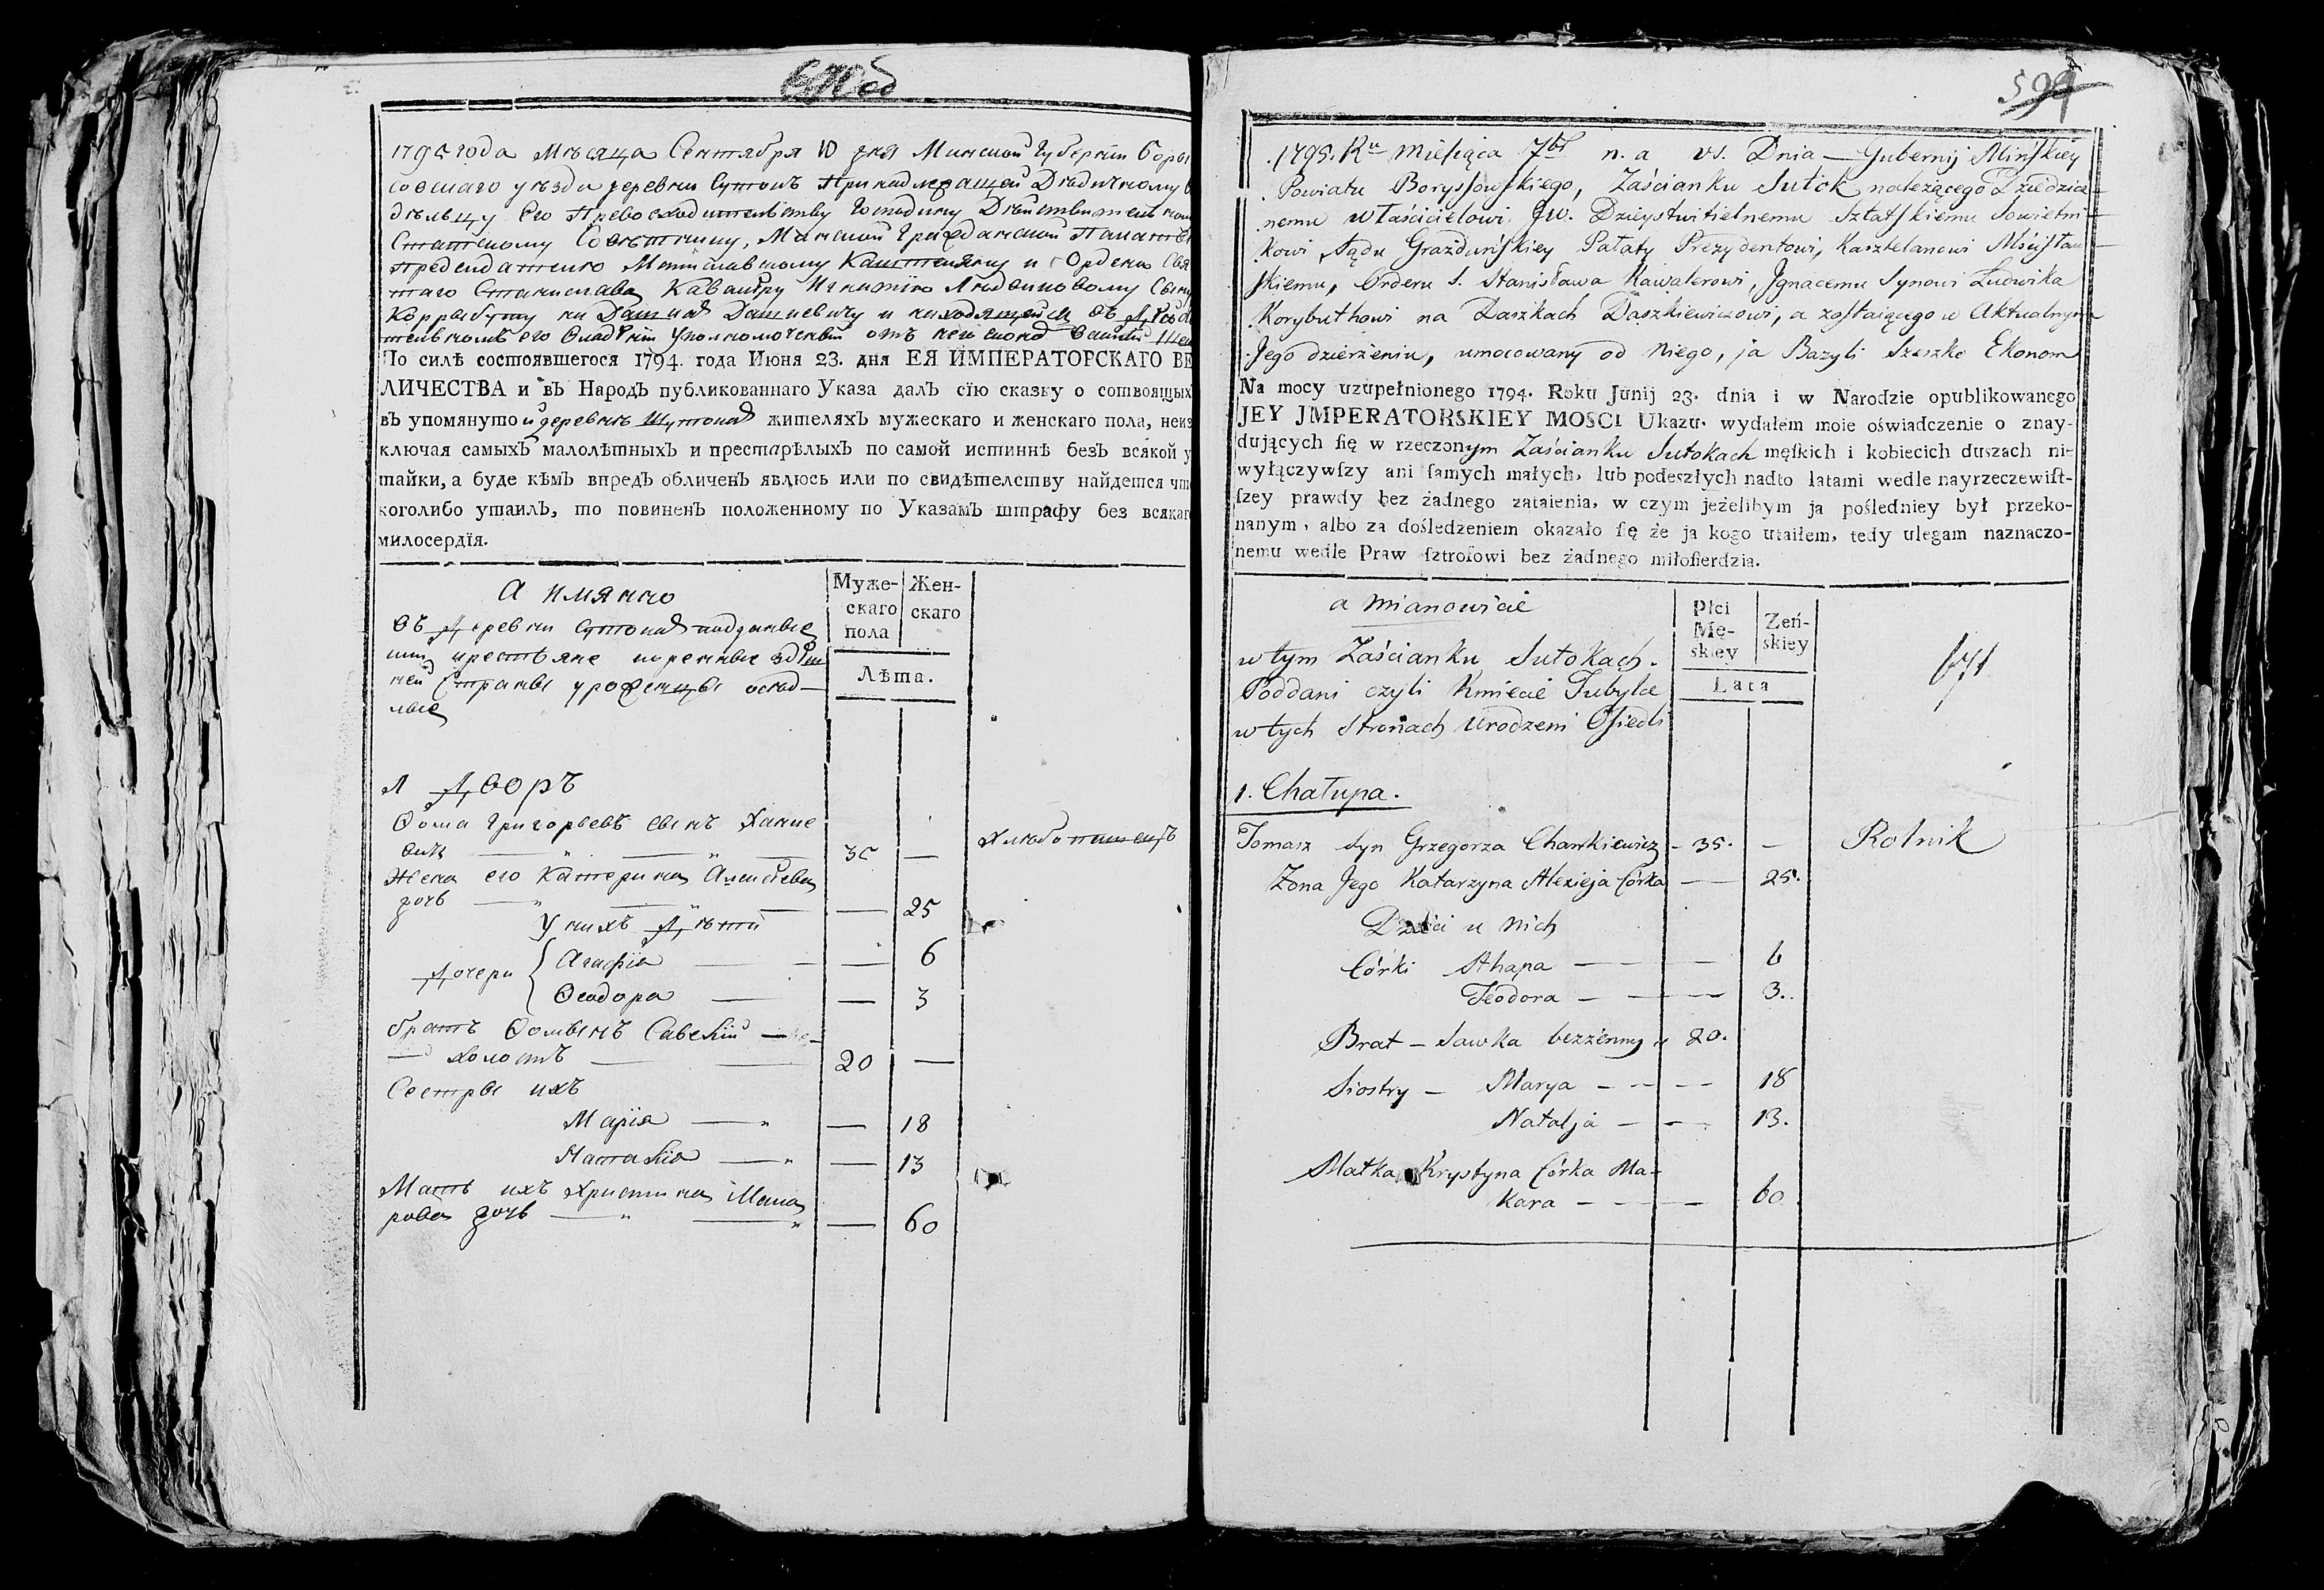 1795 года Мѣсяца Сентября 10 дня Минской Губернїи Боры
совскаго уѣзда деревни Сутокъ Принадлежащей Дѣдичному
дѣльцу Его Превосходительству Господину Дѣйствительному
Статскому Совѣтнику, Минской Гражданской Палаты
Председателю Мстиславскому Каштеляну и Ордена Свя
таго Станислава Кавалеру Игнатїю Людвикову Сыну
Корыбуту на Дашках Дашкевичу и находящейся въ
его Владѣнїи Уполномоченный отъ него
По силѣ состоявшегося 1794. года Июня 23. дня ЕЯ ИМПЕРАТОРСКАГО ВЕ
ЛИЧЕСТВА и въ Народъ публикованнаго Указа далъ сїю сказку о сотвоящыхъ
въ упомянутой деревнѣ Сутоках жителяхъ мужескаго и женскаго пола, неиз
ключая самыхъ малолѣтныхъ и престарѣлыхъ по самой истиннѣ безъ всякой у
тайки, а буде кѣмъ впредъ обличенъ явлюсь или по свидѣтелству найдется чт
коголибо утаилъ, то повиненъ положенному по Указамъ штрафу без всякаго
милосердїя.
А имянно
Муже-
скаго
пола
Жен-
скаго
Лѣта.
Въ Деревни Сутоках подданые
или крестьяне коренные здѣш
ней Страны уроженцы осѣд-
лые
1 Дворъ
Фома Григорьевъ сынъ Ханке
вичъ — " — " — 35 — Хлебопашецъ
Жена его Катерина Алексѣева
дочь — " — " — — 25
У нихъ Дѣти
Дочери { Агафїя — — — 6
Феодора — — 3
братъ Фоминъ Савелїй —
— холостъ — — 20 —
Сестры ихъ
Марїя — " — 18
Наталїя — " — 13
Мать ихъ Христина Мака
рова дочь — " — " — 60
594
1795. Ru Miesiąca 7bra n. a vs. Dnia — Gubernij Mińskiey
Powiatu Borysowskiego, Zaścianku Sutok należącego Dziedzicz-
nemu właścicielowi JW. Dzieystwitielnemu Sztatskiemu Sowietni-
kowi, Sądu Grażdańskiey Pałaty Prezydentowi, Kasztelanowi Mścisław-
skiemu, Orderu S. Stanisława Kawalerowi, Jgnacemu Synowi Ludwika
Korybuthowi na Daszkach Daszkiewiczowi, a zostaiącego w Aktualnym
Jego dzierżeniu, umocowany od niego, ja Bazyli Szeszko Ekonom
Na mocy uzupełnionego 1794. Roku Junij 23. dnia i w Narodzie opublikowanego
JEY JMPERATORSKIEY MOSCI Ukazu. wydałem moie oświadczenie o znay-
dujących się w rzeczonym Zaścianku Sutokach męskich i kobiecich duszach ni-
wyłączywszy ani samych małych, lub podeszłych nadto latami wedle nayrzeczewist-
szey prawdy bez żadnego zataienia, w czym jeżelibym ja pośledniey był przeko-
nanym, albo za dośledzeniem okazało się że ja kogo utaiłem, tedy ulegam naznaczo-
nemu wedle Praw sztrofowi bez żadnego miłosierdzia.
a mianowicie
Płci
Mę-
skiey
Żeń-
skiey
Lata
671
w tym Zaścianku Sutokach.
Poddani czyli Kmiecie Tubylce
w tych Stronach Urodzeni Osiedli
1. Chałupa.
Tomasz Syn Grzegorza Chankiewicz - 35. — Rolnik
Żona Jego Katarzyna Alexieja Córka — 25.
Dzieci u nich
Córki Ahapa — — 6
Teodora — — 3.
Brat - Sawka bezżenny 20.
Siostry - Marya - - - 18
Natalja - - - 13.
Matka Krystyna Córka Ma-
kara - - - 60